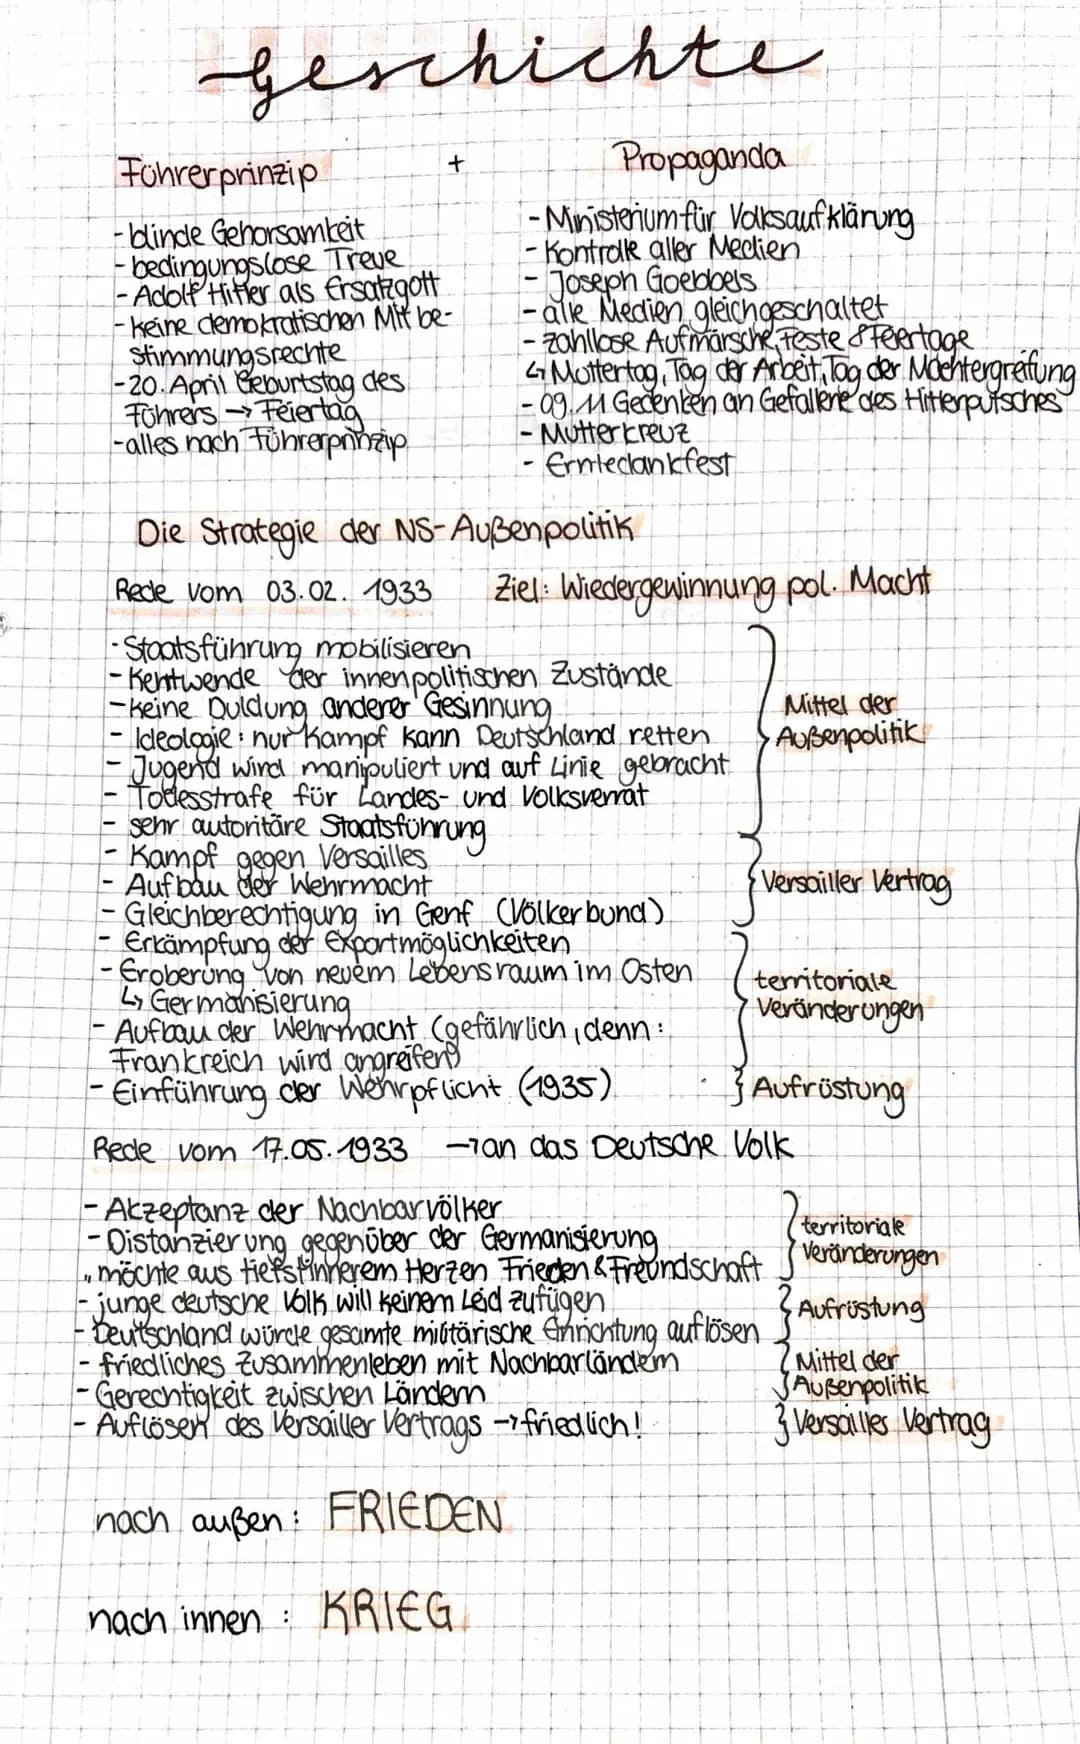 Geschichte
Führerprinzip + Propaganda
- blinde Gehorsamkeit
- bedingungslose Treue
- Adolf Hitler als Ersatzgott
- keine demokratischen Mitbe-
stimmungsrechte
- 20. April Geburtstag des
Führers → Feiertag
- alles nach Führerprinzip
- Ministerium für Volksaufklärung
- Kontrolle aller Medien
- Joseph Goebbels
- alle Medien gleichgeschaltet
- zahllose Aufmärsche, Feste & Feiertage
↳ Muttertag, Tag der Arbeit, Tag der Machtergreifung
- 09.11 Gedenken an Gefallene des Hitlerputsches
- Mutterkreuz
- Erntedankfest
Die Strategie der NS-Außenpolitik
Rede vom 03.02. 1933 Ziel: Wiedergewinnung pol. Macht
- Staatsführung mobilisieren
- Kehtwende der innenpolitischen Zustände
- keine Duldung anderer Gesinnung
- Ideologie: nur Kampf kann Deutschland retten
- Jugend wird manipuliert und auf Linie gebracht
- Todesstrafe für Landes- und Volksverrat
- sehr autoritäre Staatsführung
Mittel der
Außenpolitik
- Kampf gegen Versailles
- Aufbau der Wehrmacht
- Gleichberechtigung in Genf (Völkerbund)
Versailler Vertrag
- Erkämpfung der Exportmöglichkeiten
- Eroberung von neuem Lebensraum im Osten
↳ Germanisierung
- Aufbau der Wehrmacht (gefährlich, denn:
Frankreich wird angreifen)
territoriale
Veränderungen
- Einführung der Wehrpflicht (1935) } Aufrüstung
Rede vom 17.05.1933 → an das Deutsche Volk
- Akzeptanz der Nachbarvölker
- Distanzierung gegenüber der Germanisierung
„möchte aus tiefstinnerem Herzen Frieden & Freundschaft
territoriale
Veränderungen
- junge deutsche Volk will keinem Leid zufügen
- Deutschland würde gesamte militärische Einrichtung auflösen
Aufrüstung
- friedliches Zusammenleben mit Nachbarländern
- Gerechtigkeit zwischen Ländern
Mittel der
Außenpolitik
- Auflösen des Versailler Vertrags → friedlich! } Versailles Vertrag
nach außen: FRIEDEN
nach innen: KRIEG